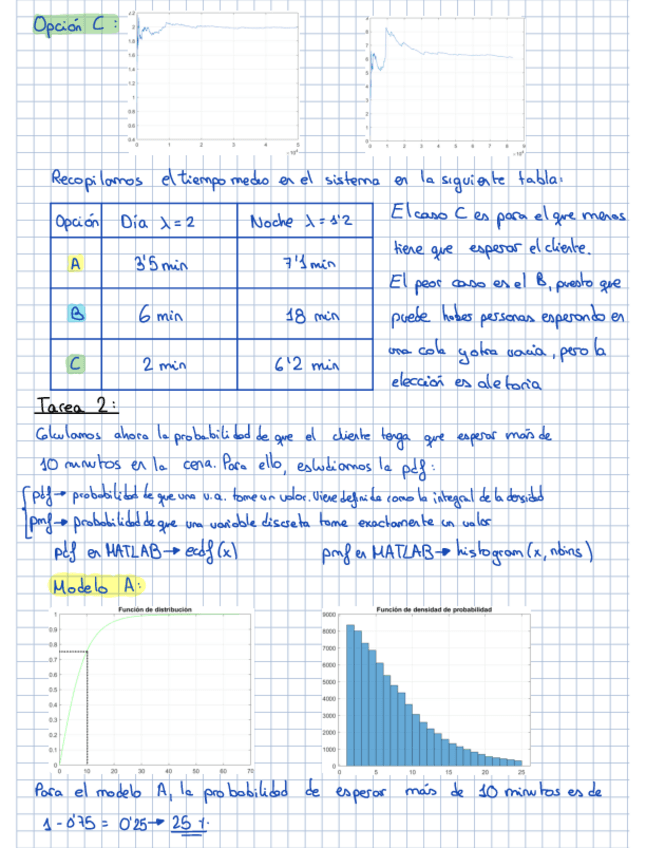 Opción C:
2.2
2
1.8
1.6
1.4
1.2
1
0.8
0.6
0.4
0 1 2 3 4 5
9
8
7
6
5
4
3
2
1
0 1 2 3 4 5 6 7 8 9
Recopilamos el tiempo medio en el sistema en la siguiente tabla:
Opción Día λ = 2 Noche λ = 1'2
A 3'5 min 7'1 min
B 6 min 18 min
C 2 min 6'2 min
El caso C es para el que menos
tiene que esperar el cliente.
El peor caso es el B, puesto que
puede haber personas esperando en
una cola y otra vacia, pero la
elección es aletoria
Tarea 2:
Calculamos ahora la probabilidad de que el cliente tenga que esperar más de
10 minutos en la cena. Para ello, estudiamos la pdf:
pdf → probabilidad de que una v.a. tome un valor. Viene definida como la integral de la densidad
pmf → probabilidad de que una variable discreta tome exactamente un valor
pdf en MATLAB → ecdf(x) pmf en MATLAB → histogram(x, nbins)
Modelo A:
Función de distribución
1
0.9
0.8
0.7
0.6
0.5
0.4
0.3
0.2
0.1
0
0 10 20 30 40 50 60 70
Función de densidad de probabilidad
9000
8000
7000
6000
5000
4000
3000
2000
1000
0
0 5 10 15 20 25
Para el modelo A, la probabilidad de esperar más de 10 minutos es de
1 - 0'75 = 0'25 → 25 %.